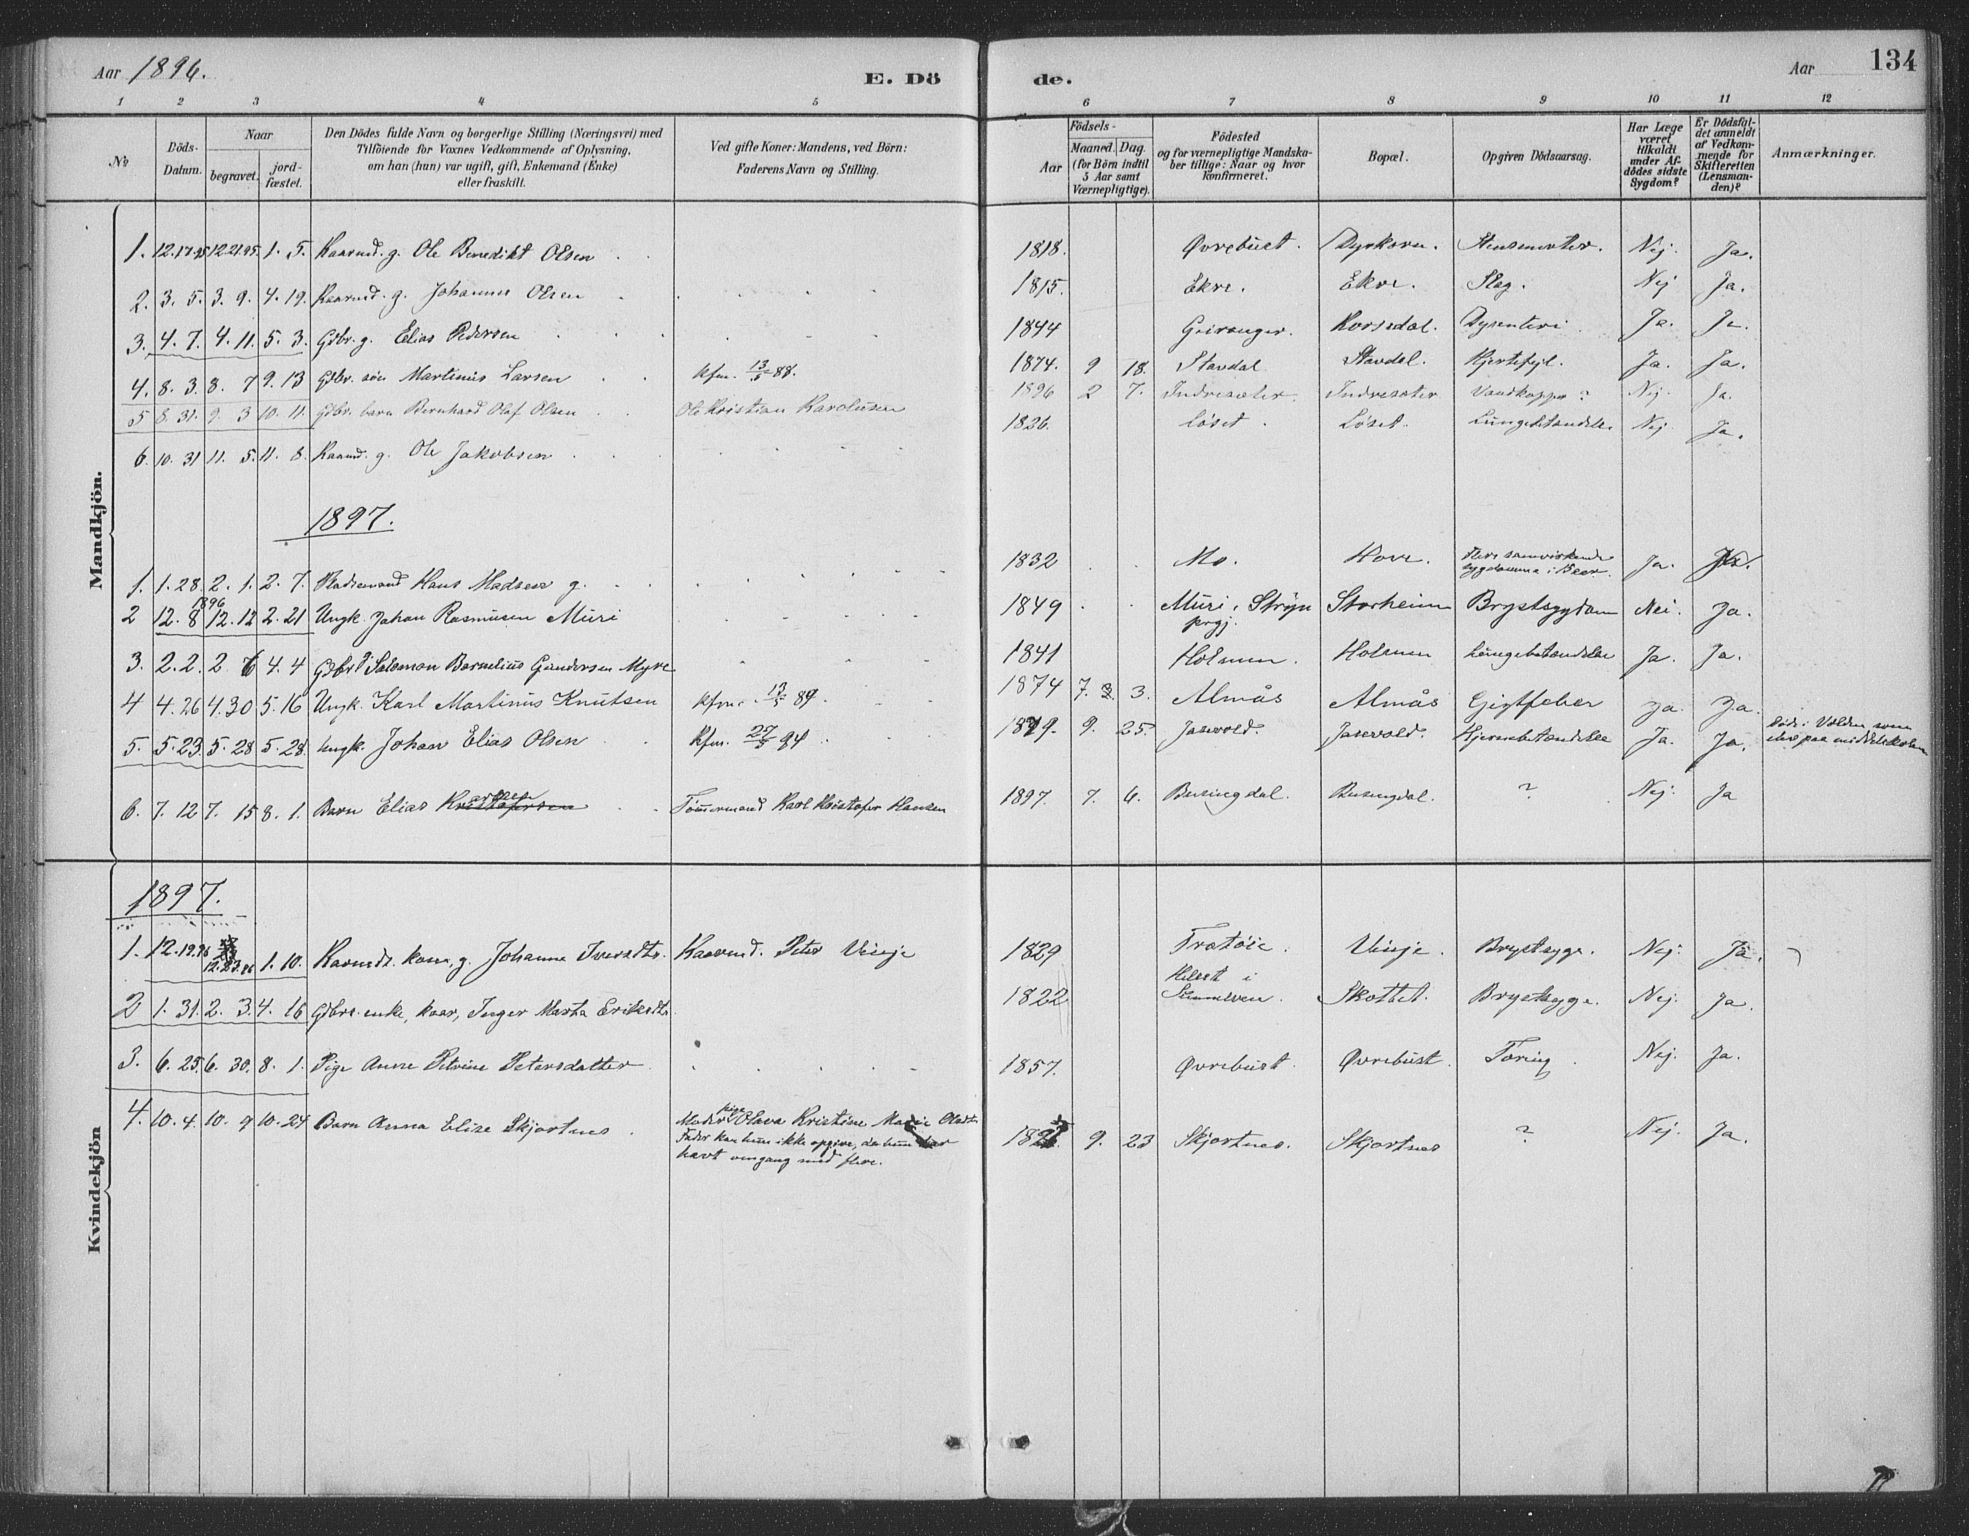 Aar 1896. E. Dö de. Aar 134
1 2 3 4 5 6 7 8 9 10 11 12
No
Döds-Datum.
Naar
begravet.
jord-fæstet.
Den Dödes fulde Navn og borgerlige Stilling (Næringsvei) med
Tilföiende for Voxnes Vedkommende af Oplysning,
om han (hun) var ugift, gift, Enkemand (Enke)
eller fraskilt.
Ved gifte Koner: Mandens, ved Börn:
Faderens Navn og Stilling.
Födsels-
Aar
Maaned. Dag.
(for Börn indtil
5 Aar samt
Værnepligtige).
Födested
og for værnepligtige Mandska-
ber tillige: Naar og hvor
konfirmeret.
Bopæl.
Opgiven Dödsaarsag.
Har Læge
været
tilkaldt
under Af-
dödes sidste
Sygdom?
Er Dödsfal-
det anmeldt
af Vedkom-
mende for
Skifteretten
(Lensman-
den)?
Anmærkninger.
Mandkjön.
1. 12.17.95 12.21.95. 1. 5. Kaarmd. g. Ole Benedikt Olsen 1818. Øvrebust. Dyrkorn. Nej. Ja.
2. 3. 5. 3. 9. 4. 19. Kaarmd. g. Johannes Olsen 1815. Ekre. Ekre. Slag. Nej Ja.
3. 4. 7. 4. 11. 5. 3. Gdbr. g. Elias Pedersen 1844 Geiranger. Korsedal. Dysenteri Ja. Ja.
4. 8. 3. 8. 7 9. 13 Gdbr. søn Martinus Larsen Kfm. 13/5 88. 1874. 9 18. Stavdal Stavdal. Hjertefejl. Ja. Ja.
5 8. 31. 9. 3 10. 11. Gdbr. barn Bernhard Olaf Olsen Ole Kristian Karolusen 1896 2 7. Indresæter. Indresæter Vandkopper ? Nej. Ja.
6. 10. 31 11. 5. 11. 8. Kaarmd. g. Ole Jakobsen 1826. Løset. Løset. Lungebetændelse Nej Ja.
1897.
1. 1. 28. 2. 1. 2. 7. Pladsemand Hans Madsen g. 1832 Mo. Hove. Flere samvirkende
sygdomme i Ja. Ja.
2 12. 8 1896 12. 12 2. 21 Ungk. Johan Rasmusen Muri 1849 Muri, Stryn
prgj. Storheim Brystsygdom Nei. Ja.
3. 2. 2. 2 6 4. 4 Gdbr. g Salomon Bornelius Gundersen Myre 1841 Holmen. Holmen Lungebetændelse Ja. Ja.
4 4. 26 4. 30 5. 16 Ungk. Karl Martinus Knutsen Kfm. 13/5 89. 1874 7. 3. Almås Almås Gigtfeber Ja. Ja.
5. 5. 23. 5. 28 5. 28. Ungk Johan Elias Olsen Kfm. 27/5 94 1879. 9. 25. Jasevold. Jasevold. Hjernebetændelse Ja. Ja. Døde i Volden som
elev paa middelskolen
6. 7. 12 7. 15 8. 1. Barn Elias Kristofersen Tømermand Karl Kristofer Hansen 1897. 7. 6. Busingdal. Busingdal. ? Nej. Ja
Kvindekjön
1897.
1. 12. 19.96 12.23.96 1. 10. Kaarmds. kone, g. Johanne Iversdtr. Kaarmd. Peter Vinje 1829 Tratøie. Vinje. Brystsyge. Nej. Ja.
2 1. 31. 2. 3. 4. 16 Gdbrs. enke, kaar, Inger Marta Eriksdtr. 1822 Helset i
Sunnelven. Skottet. Brystsyge. Nej. Ja.
3. 6. 25. 6. 30. 8. 1. Pige Anne Petrine Petersdatter 1857. Øvrebust. Øvrebust. Tæring. Nej. Ja.
4. 10. 4. 10. 9 10. 24 Barn Anna Elise Skjortnes. Moder pige Olava Kristine Marie Olsdtr.
Fader kan hun ikke opgive, da hun har
havt omgang med flere. 9. 23 Skjortnes. Skjortnes ? Nej. Ja.